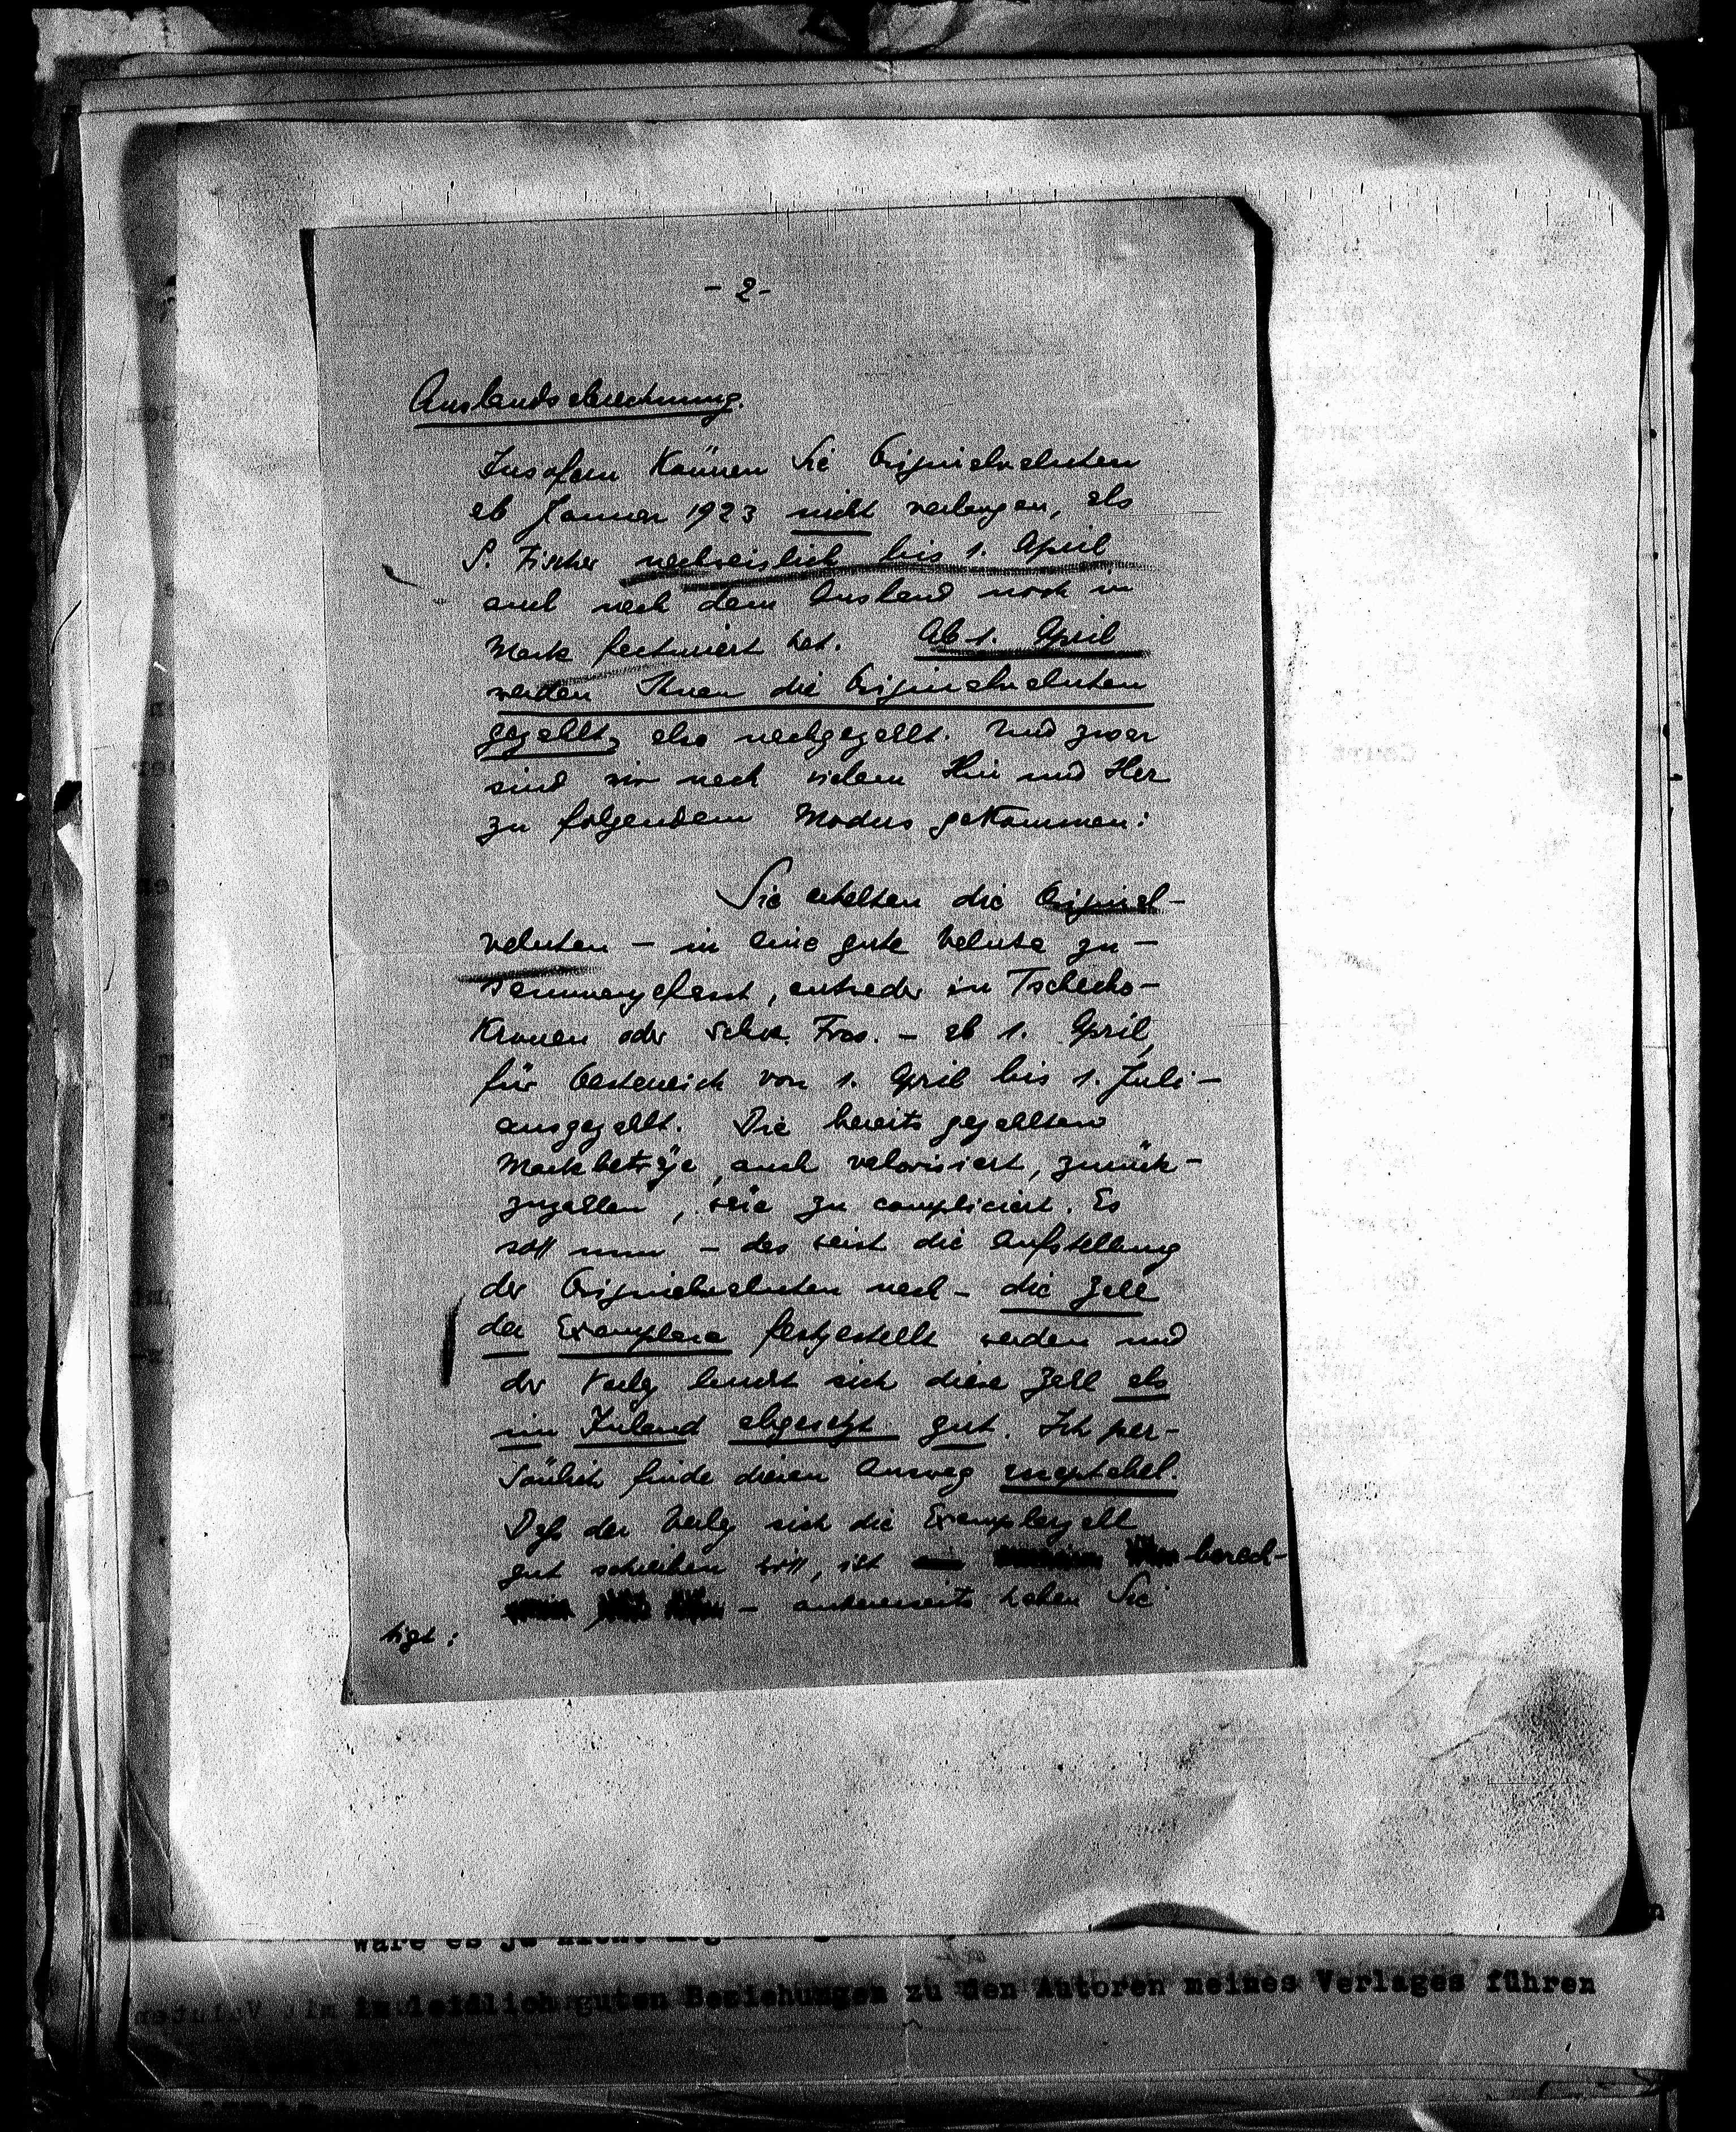 - 2 -
Auslandsabrechnung.
Insofern können Sie Originalvaluten
ab Januar 1923 nicht verlangen, als
S. Fischer nachweislich bis 1. April
auch nach dem Ausland noch in
Mark facturiert hat. Ab 1. April
werden Ihnen die Originalvaluten
gezahlt, also nachgezahlt. Und zwar
sind wir nach vielem Hin und Her
zu folgendem Modus gekommen:
Sie erhalten die Original-
valuten – in eine gute Valuta zu-
sammengefasst, entweder in Tschecho-
Kronen oder schw. Frcs. – ab 1. April,
für Oesterreich von 1. April bis 1. Juli –
ausgezahlt. Die bereits gezahlten
Markbeträge, auch valorisiert, zurück-
zuzahlen, wäre zu compliciert. Es
soll nun – das weist die Aufstellung
der Originalvaluten nach – die Zahl
der Exemplare festgestellt werden und
der Verlag bucht sich diese Zahl als
im Inland abgesetzt gut. Ich per-
sönlich finde diesen Ausweg
Daß der Verlag sich die Exemplarzahl
gut schreiben will, ist berech-
– andererseits haben Sie
tigt:
wäre es ja nicht
leidlich guten Beziehungen zu den Autoren meines Verlages führen